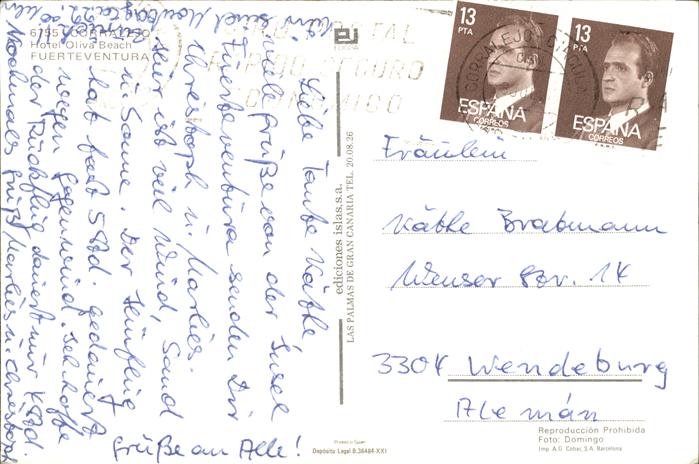 6755 CORRALEJO
Hotel Oliva Beach
FUERTEVENTURA
Liebe Tante Käthe
viele Grüße von der Insel
Fuerteventura senden Dir
Christoph u. Marlies.
Hier ist viel Wind, Sand
u. Sonne. Der Hinflug
hat fast 5 Std. gedauert
wegen Gegenwind. Ich hoffe
der Rückflug dauert nur 4 Std.
Nochmals Grüße Marlies u. Christoph
Grüße an Alle!
ediciones islas, s.a.
LAS PALMAS DE GRAN CANARIA TEL. 20.08.26
Printed in Spain
Depósito Legal B.36484-XXI
13
PTA
ESPAÑA
CORREOS
13
PTA
ESPAÑA
CORREOS
CORRALEJO
Fräulein
Käthe Brabmann
Wenser Str. 14
3304 Wendeburg
Alemán
Reproducción Prohibida
Foto: Domingo
Imp. A.G. Cobas, S.A. Barcelona